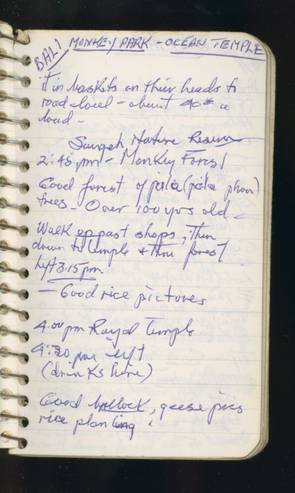 BALI MONKEY PARK - OCEAN TEMPLE
it in baskets on their heads to
road level - about 40¢ a
load -
Sangeh Nature Reserve
2:45 pm - Monkey Forest
Good forest of pala (pala phon)
trees. Over 100 yrs old -
Walk up past shops, then
down to temple & thru forest
left 3:15 pm.
- Good rice pictures
4.00 pm Royal Temple
4:30 pm left
(drinks here)
Good bullock, geese pics
rice planting.